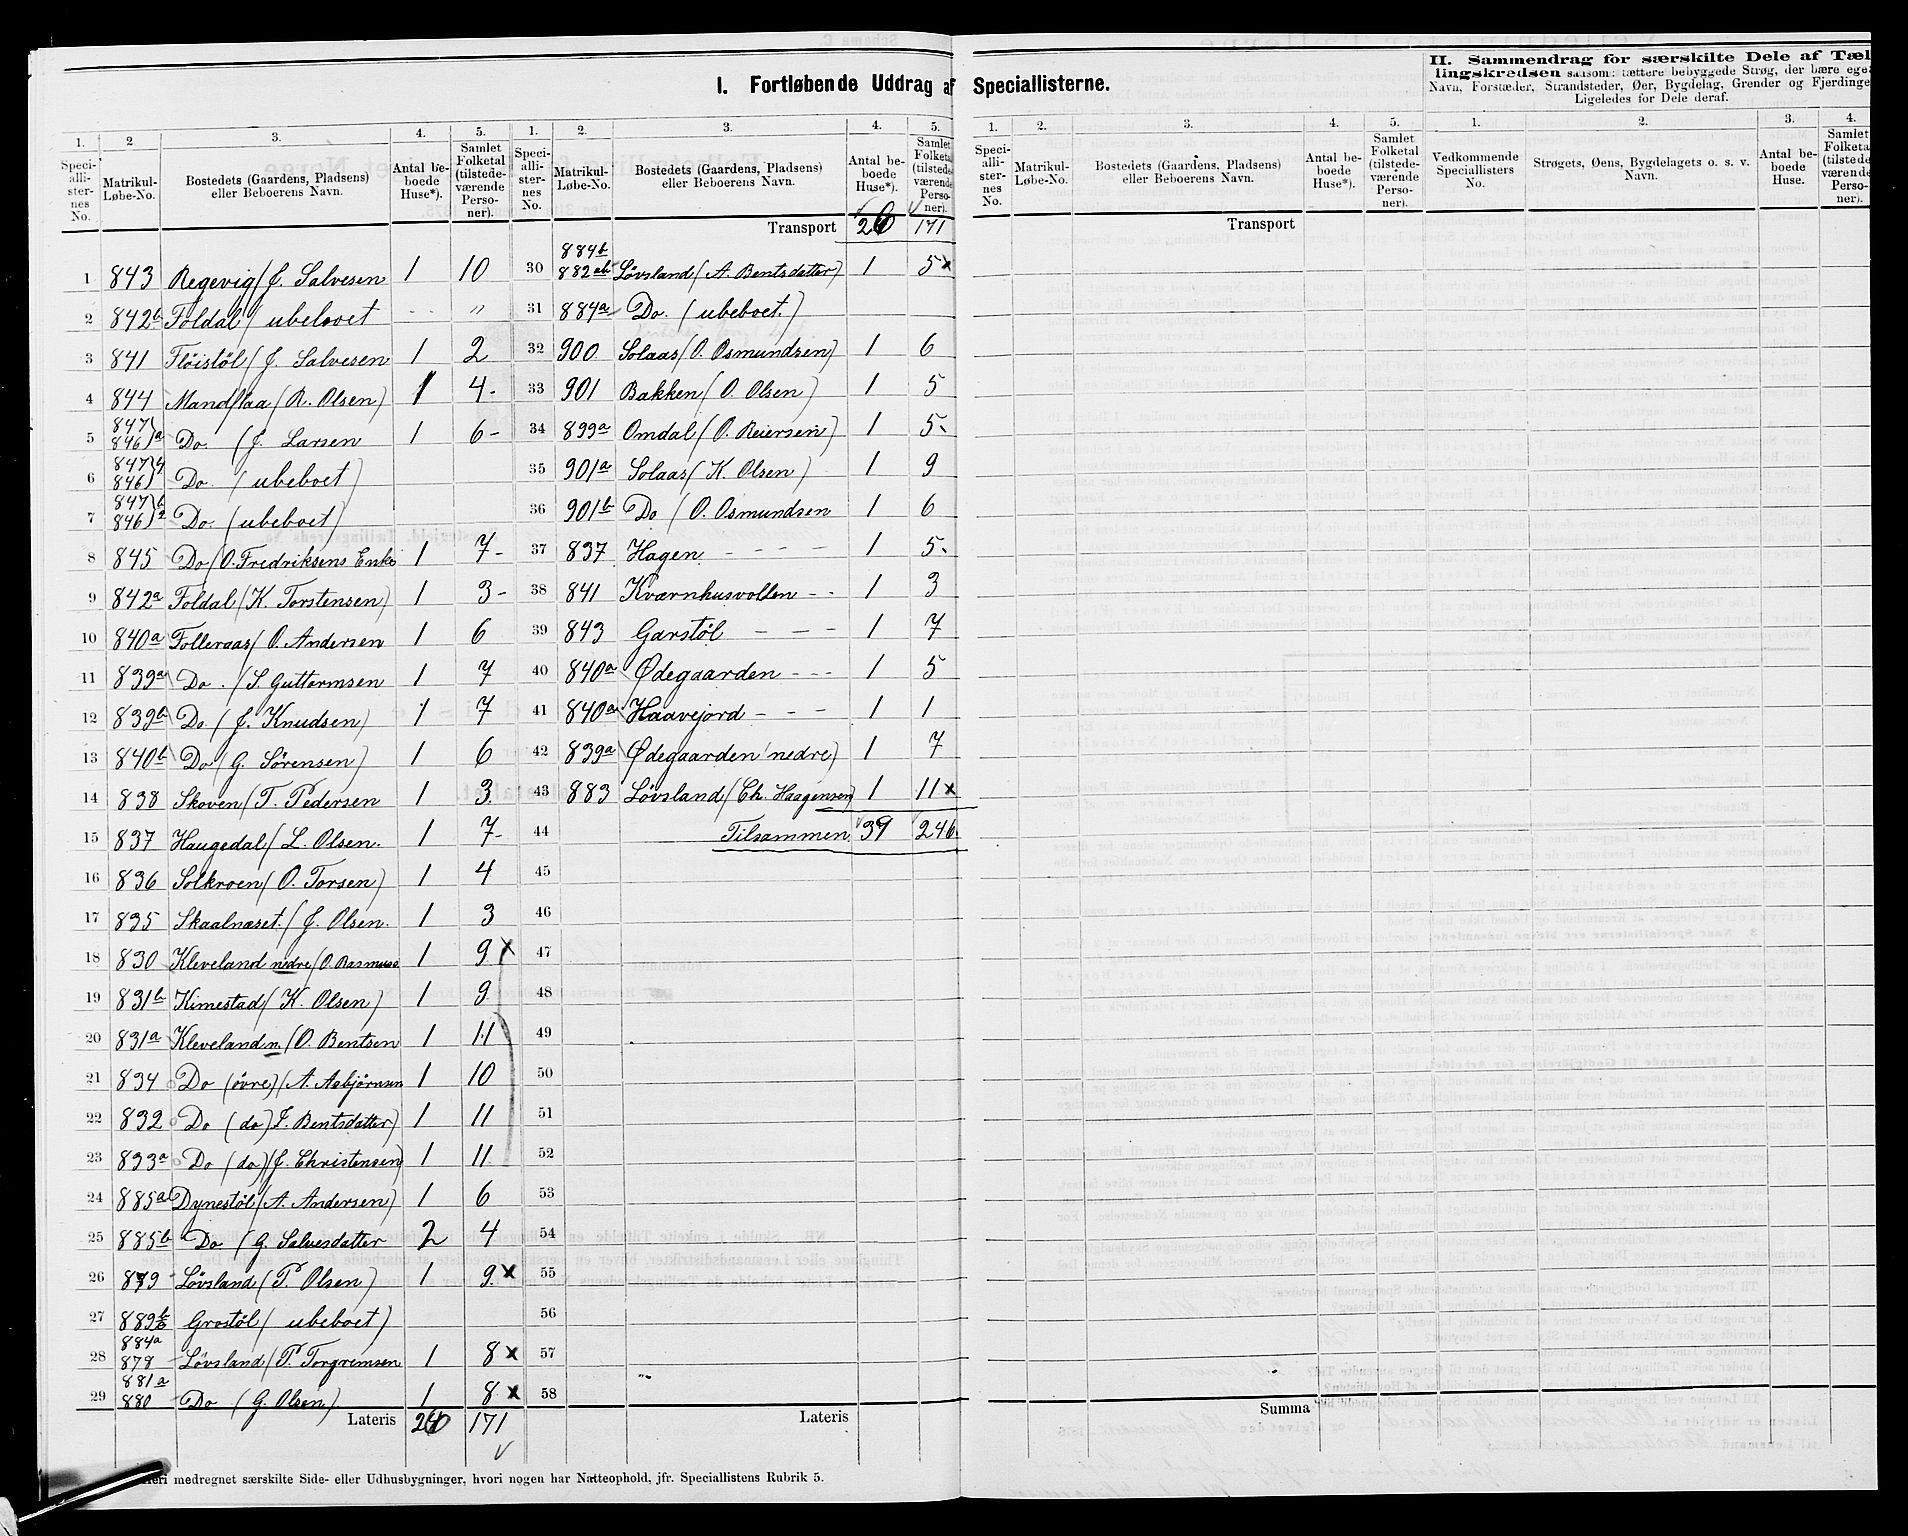 I. Fortløbende Uddrag af Speciallisterne.
1. 2 3. 4. 5.
Speciallisternes No. Matrikul-Løbe-No. Bostedets (Gaardens, Pladsens) eller Beboerens Navn. Antal beboede Huse*). Samlet Folketal (tilstedeværende Personer).
1 843 Regevig (J. Salvesen 1 10
2 842b Foldal (ubeboet - - "
3 841 Flöistöl (J. Salvesen 1 2
4 844 Mandflaa (R. Olsen) 1 4-
5 847 846)a Do. (J. Larsen 1 6-
6 847 846) Do. (ubeboet)
7 847 846) Do. (ubeboet)
8 845 Do (O. Fredriksens Enke 1 7-
9 842a Foldal (K. Torstensen) 1 3-
10 840a Folleraas (O. Andersen 1 6
11 839a Do. (S. Guttormsen 1 7
12 839b Do (J. Knudsen) 1 7
13 840b Do (G. Sörensen) 1 6
14 838 Skoven (T. Pedersen 1 3
15 837 Haugedal (L. Olsen. 1 7-
16 836 Solkroen (O. Torsen) 1 4
17 835 Skaalnæset. (J. Olsen. 1 3
18 830 Kleveland nedre (O. Rasmuss. 1 9 x
19 831b Kimestad (K. Olsen) 1 9
20 831a Kleveland n. (O. Bentsen 1 11
21 834 Do (övre) (A. Asbjörnsen 1 10
22 832 Do (do) J. Bentsdatter) 1 11
23 833a Do (do) (J. Christensen) 1 11
24 885a Dynestöl (A. Andersen) 1 6
25 885b Do (G. Salvesdatter 2 4
26 879 Lövsland (P. Olsen) 1 9 x
27 889 Grostöl (ubeboet)
28 884a 878 Lövsland (P. Torgrimsen 1 8 x
29 881a 880 Do (G. Olsen). 1 8 x
Lateris 26 171
*) Heri medregnet særskilte Side- eller Udhusbygninger, hvori nogen har Natteophold, jfr. Speciallistens Rubrik 5.
1. 2. 3. 4. 5.
Speciallisternes No. Matrikul-Løbe-No. Bostedets (Gaardens, Pladsens) eller Beboerens Navn. Antal beboede Huse*). Samlet Folketal (tilstedeværende Personer).
Transport 26 171
30 884b 882ab Lövsland (A. Bentsdatter) 1 5 x
31 884a Do. (ubeboet.)
32 900 Solaas (O. Osmundsen) 1 6
33 901 Bakken (O. Olsen) 1 5
34 899a Omdal (O. Reiersen) 1 5
35 901a Solaas (K. Olsen) 1 9
36 901b Do (O. Osmundsen 1 6
37 837 Hagen - - - - 1 5
38 841 Kværnhusvollen - - 1 3
39 843 Garstöl - - - 1 7
40 840a Ødegaarden - - - 1 5
41 840a Haavejord - - - 1 1
42 839a Ødegaarden (nedre) 1 7
43 883 Lövsland (Ch. Haagensen) 1 11 x
44 Tilsammen 39 246
45
46
47
48
49
50
51
52
53
54
55
56
57
58
Lateris
1. 2. 3. 4. 5.
Speciallisternes No. Matrikul-Løbe-No. Bostedets (Gaardens, Pladsens) eller Beboerens Navn. Antal beboede Huse*). Samlet Folketal (tilstedeværende Personer).
Transport
Summa
II. Sammendrag for særskilte Dele af Tællingskredsen saasom: tættere bebyggede Strøg, der bære eget Navn, Forstæder, Strandsteder, Øer, Bygdelag, Grender og Fjerdinge. Ligeledes for Dele deraf.
1. 2. 3. 4.
Vedkommende Speciallisters No. Strøgets, Øens, Bygdelagets o. s. v. Navn. Antal beboede Huse. Samlet Folketal (tilstedeværende Personer).